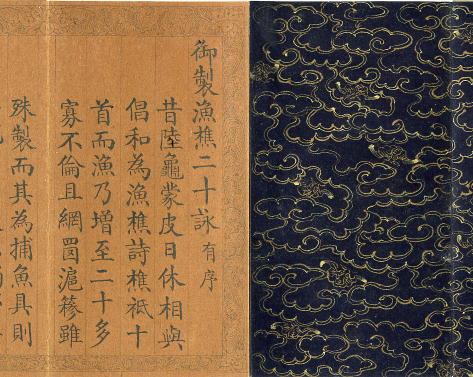 御製漁樵二十詠有序
昔陸龜蒙皮日休相與
倡和為漁樵詩樵祗十
首而漁乃增至二十多
寡不倫且網罟滬簩雖
殊製而其為捕魚具則